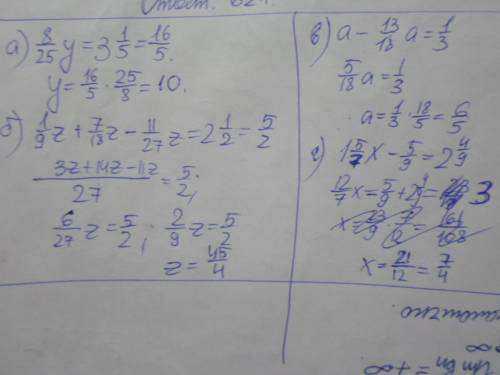 Ответ.
а) 8/25 y = 3 1/5 = 16/5.
y = 16/5 · 25/8 = 10.
б) 1/9 z + 7/13 z - 11/27 z = 2 1/2 = 5/2
(3z + 14z - 11z)/27 = 5/2;
6/27 z = 5/2; 2/9 z = 5/2
z = 45/4
в) a - 13/18 a = 1/3
5/18 a = 1/3
a = 1/3 · 18/5 = 6/5
г) 1 5/7 x - 5/9 = 2 4/9
12/7 x = 5/9 + 2 4/9 = 3
x = 23/9 · 7/12 = 161/108
x = 21/12 = 7/4
= +∞
∞